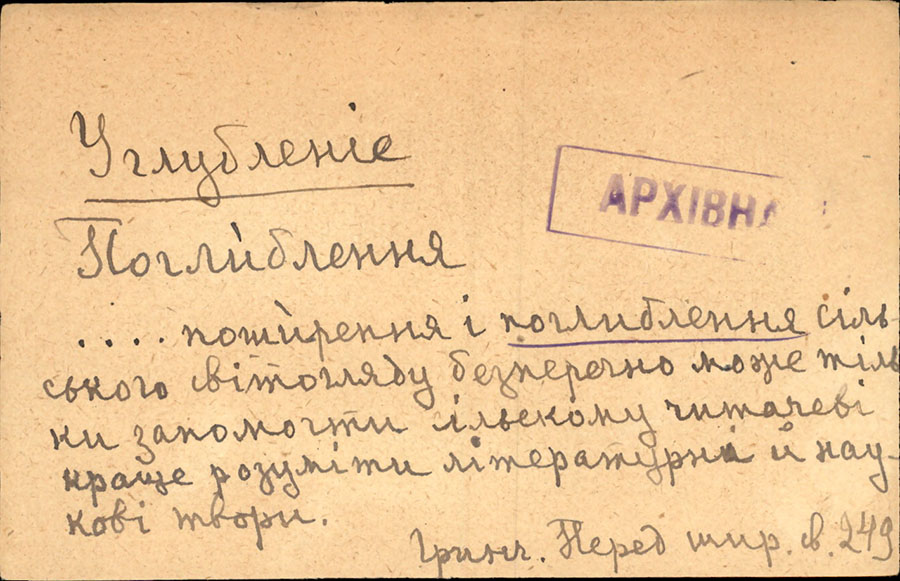 Углубленіе
АРХІВНА
Погли́блення
.... поши́рення і погли́блення сіль-
ського світогляду безперечно може тіль
ки запомогти сільскому читачеві
краще розуміти літературні й нау-
кові твори.
Грінч. Перед шир. св. 249